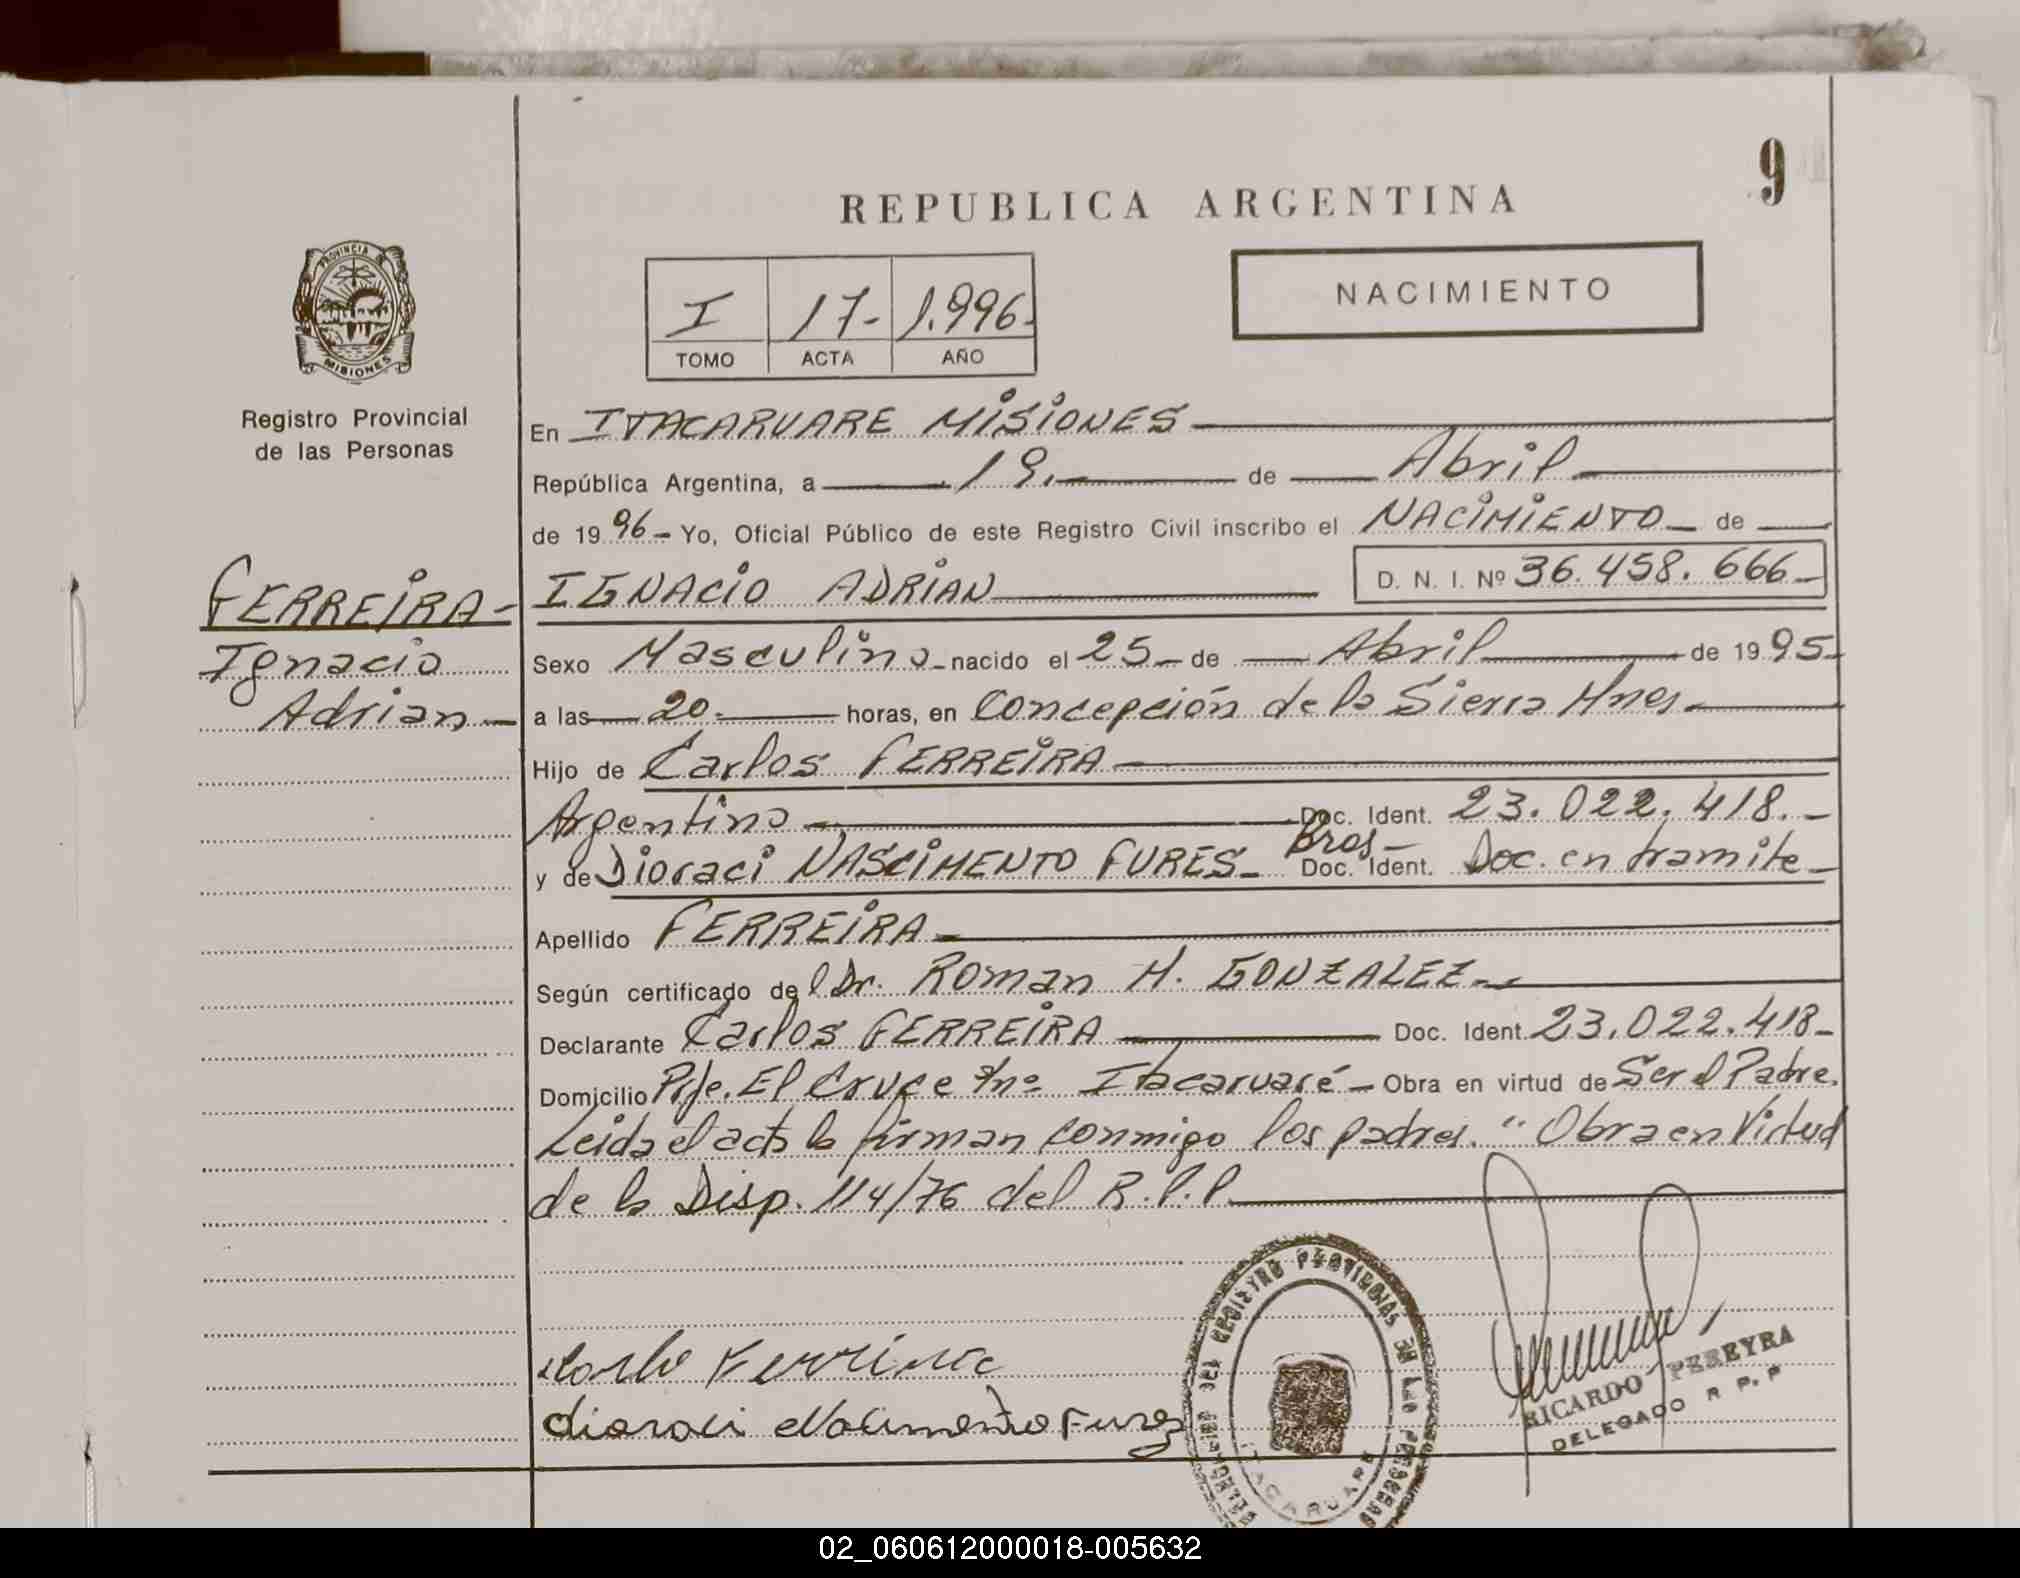 9
REPUBLICA ARGENTINA
PROVINCIA DE
MISIONES
Registro Provincial
de las Personas
I 17- 1.996-
TOMO ACTA AÑO
NACIMIENTO
En ITACARUARE MISIONES
República Argentina, a 19. de Abril
de 1996- Yo, Oficial Público de este Registro Civil inscribo el NACIMIENTO de
FERREIRA-
Ignacio
Adrian
IGNACIO ADRIAN D. N. I. Nº 36.458.666-
Sexo Masculino- nacido el 25- de Abril de 1995-
a las 20- horas, en Concepción de la Sierra Mnes-
Hijo de Carlos FERREIRA
Argentino Doc. Ident. 23.022.418.-
Bras-
y de Dioraci NASCIMENTO FURES- Doc. Ident. Doc. en tramite-
Apellido FERREIRA-
Según certificado del Dr. Roman H. GONZALEZ-
Declarante Carlos FERREIRA Doc. Ident. 23.022.418-
Domicilio Pje. El Cruce Itacaruaré- Obra en virtud de Ser el Padre.
Leida el acta la firman conmigo los padres. "Obra en Virtud
de la Disp. 114/76 del R.P.P.
dioraci Nacimento Fures
ITACARUARE
RICARDO PEREYRA
DELEGADO R P. P
02_060612000018-005632